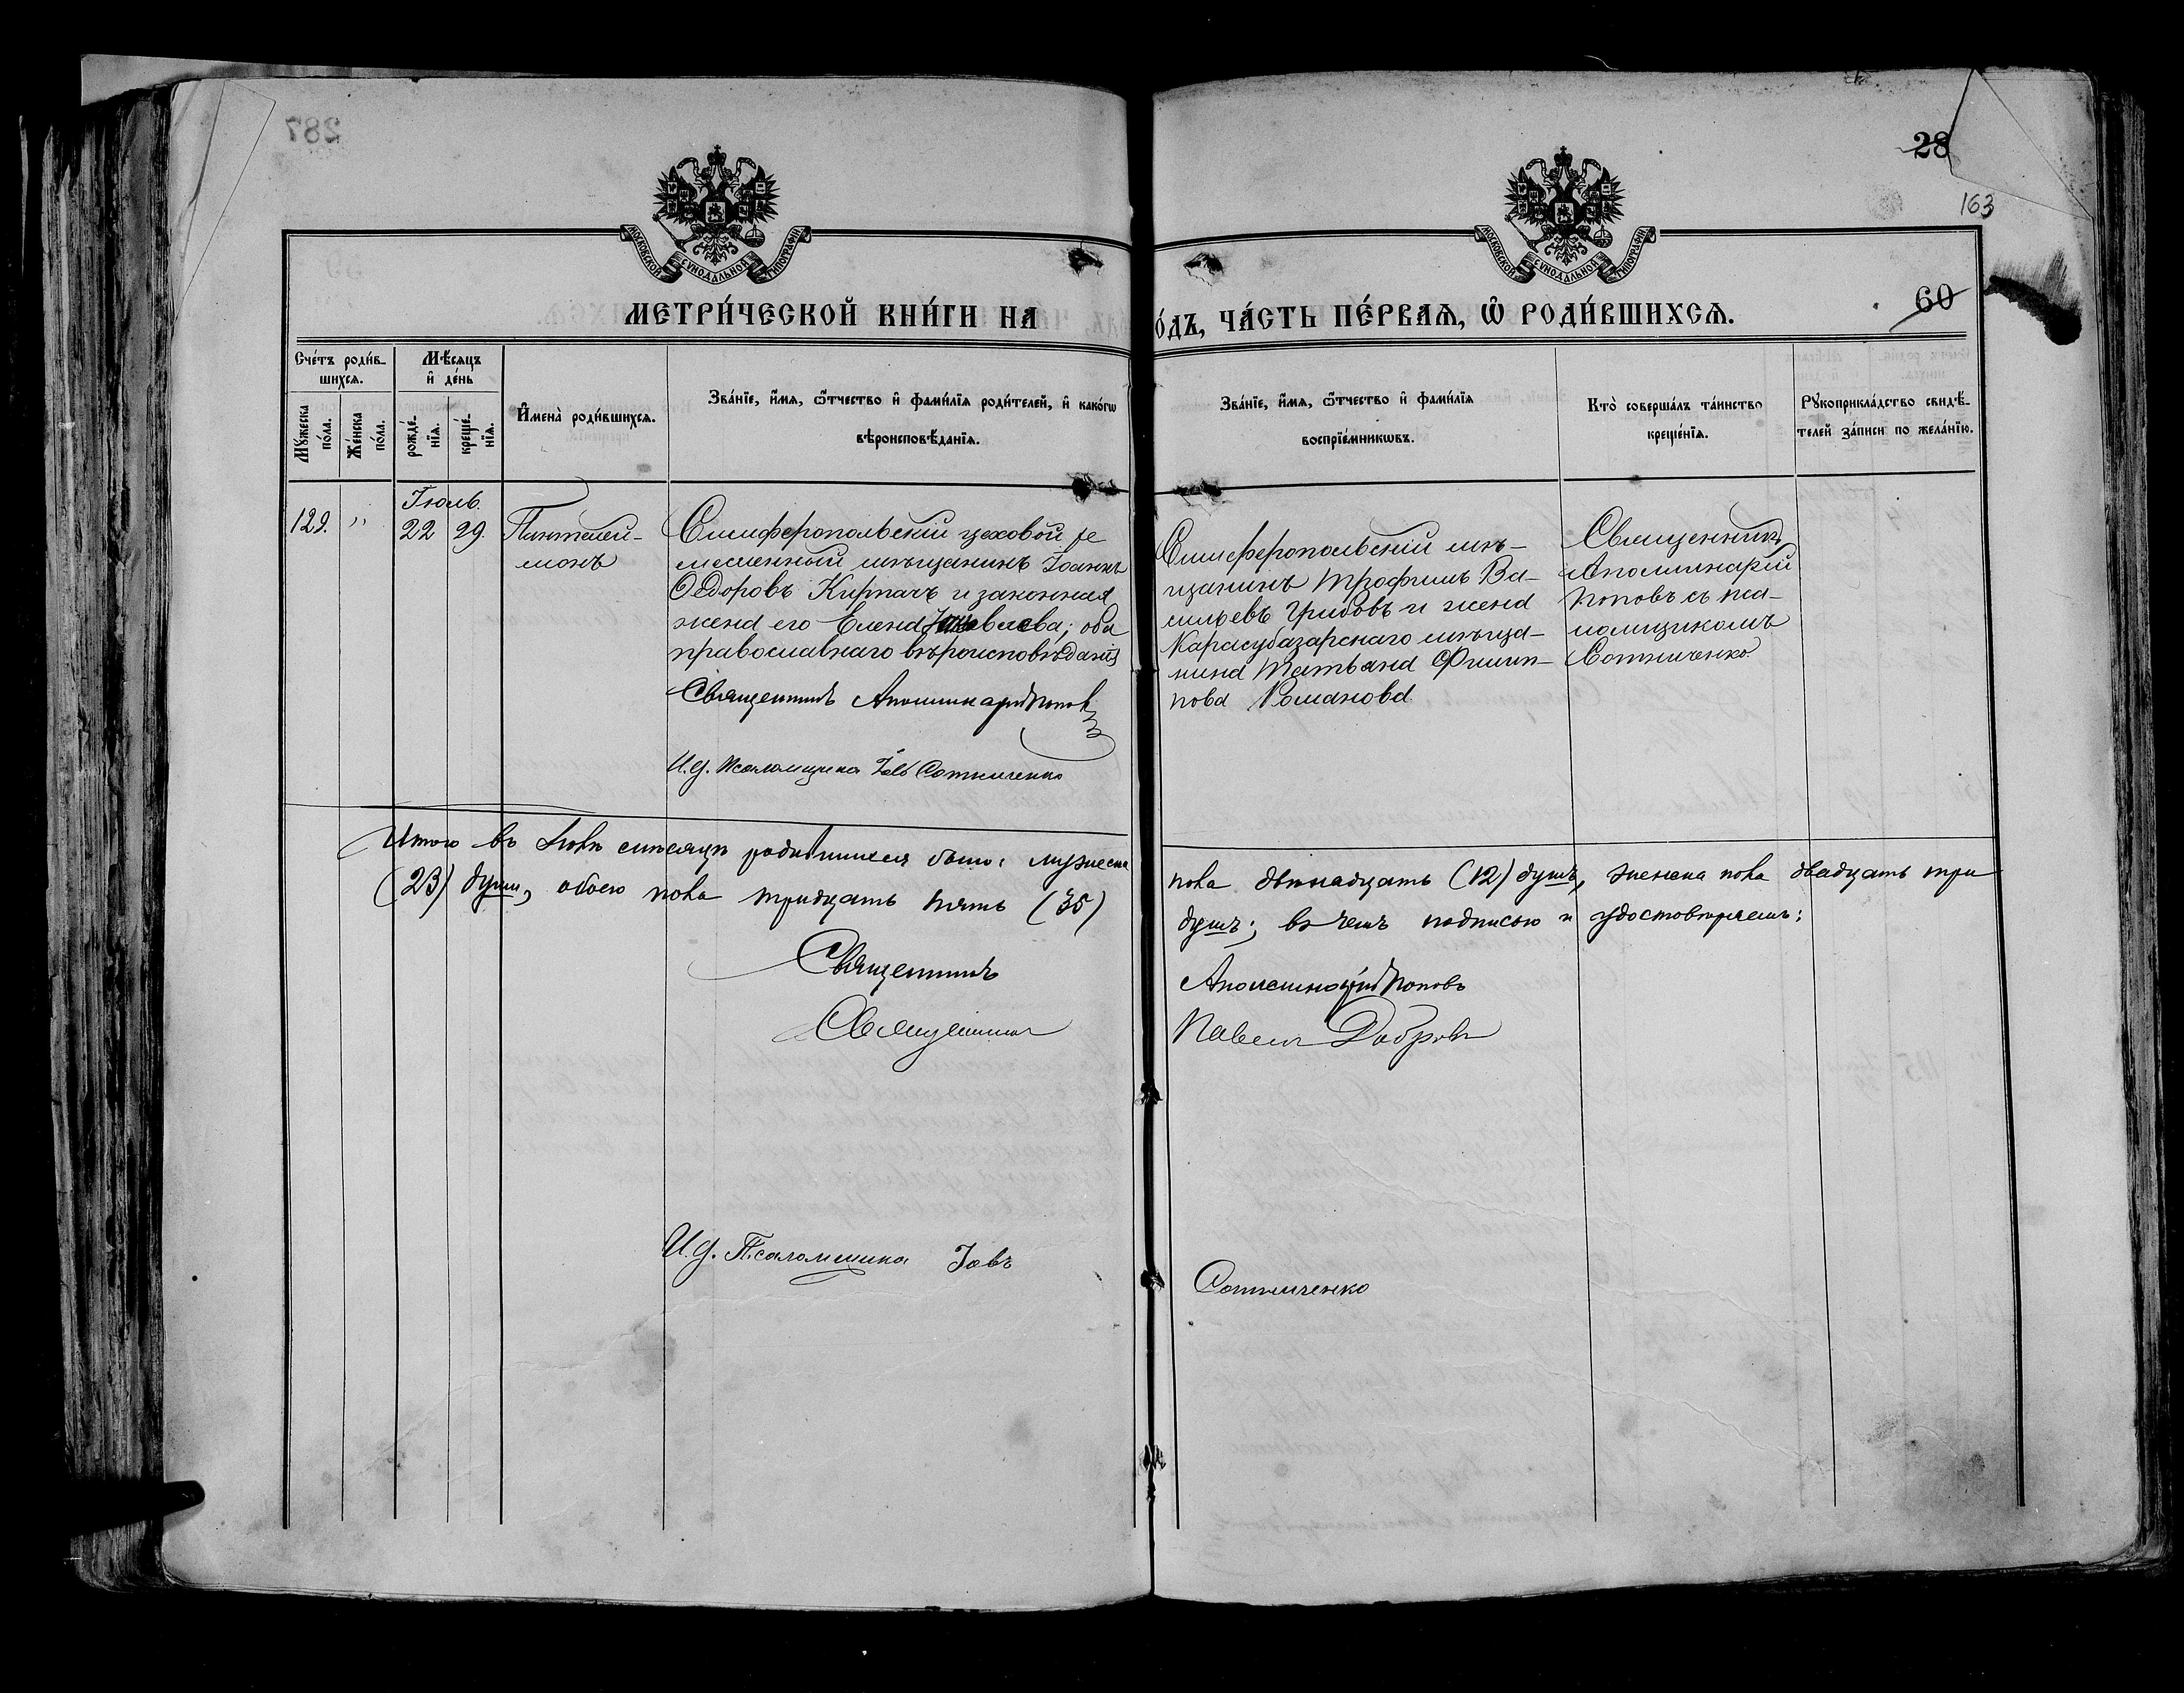 287
28
163
60
МОСКОВСКОЙ СѴНОДАЛЬНОЙ ТИПОГРАФІИ
МОСКОВСКОЙ СѴНОДАЛЬНОЙ ТИПОГРАФІИ
МЕТРИ́ЧЕСКОЙ КНИ́ГИ НА
О́ДЪ, ЧА́СТЬ ПЕ́РВАѦ, Ѿ РОДИ́ВШИХСѦ.
Сче́тъ роди́в-
шихсѧ.
Мꙋ́жеска
по́ла.
Же́нска
по́ла.
Мѣ́сѧцъ
и҆ де́нь
рожде́-
нїѧ.
креще́-
нїѧ.
И҆мена̀ роди́вшихсѧ.
Зва́нїе, и҆́мѧ, ѻ҆́тчество и҆ фами́лїѧ роди́телей, и҆ како́гѡ
вѣроисповѣ́данїѧ.
Зва́нїе, и҆́мѧ, ѻ҆́тчество и҆ фами́лїѧ
воспрїе́мникѡвъ.
Кто̀ соверша́лъ та́инство
креще́нїѧ.
Рꙋкоприкла́дство свидѣ́-
телей за́писи по жела́нїю.
Іюль.
129. " 22 29.
Пантелей-
монъ
Симферопольскій цеховой ре
месленный мѣщанинъ Іоаннъ
Ѳедоровъ Кирпачъ и законная
жена его Елена; оба
православнаго вѣроисповѣданія
Священникъ Аполлинарій Попов
И.д. Псаломщика Іовъ Сотниченко
Симферопольскій мѣ-
щанинъ Трофимъ Ва-
сильевъ Грибовъ и жена
Карасубазарскаго мѣща-
нина Татьяна Филип-
пова Романова
Священникъ
Аполлинарій
Поповъ съ пса-
ломщикомъ
Сотниченко
Итого въ Іюлѣ мѣсяцѣ родившихся было: мужеска
пола двѣнадцать (12) душъ, женска пола двадцать три
(23) души, обоего пола тридцать пять (35)
душъ; въ чемъ подписью и удостовѣряемъ:
Священникъ
Аполлинарій Поповъ
Священникъ
Павелъ Добровъ
И.д. Псаломщика Іовъ
Сотниченко